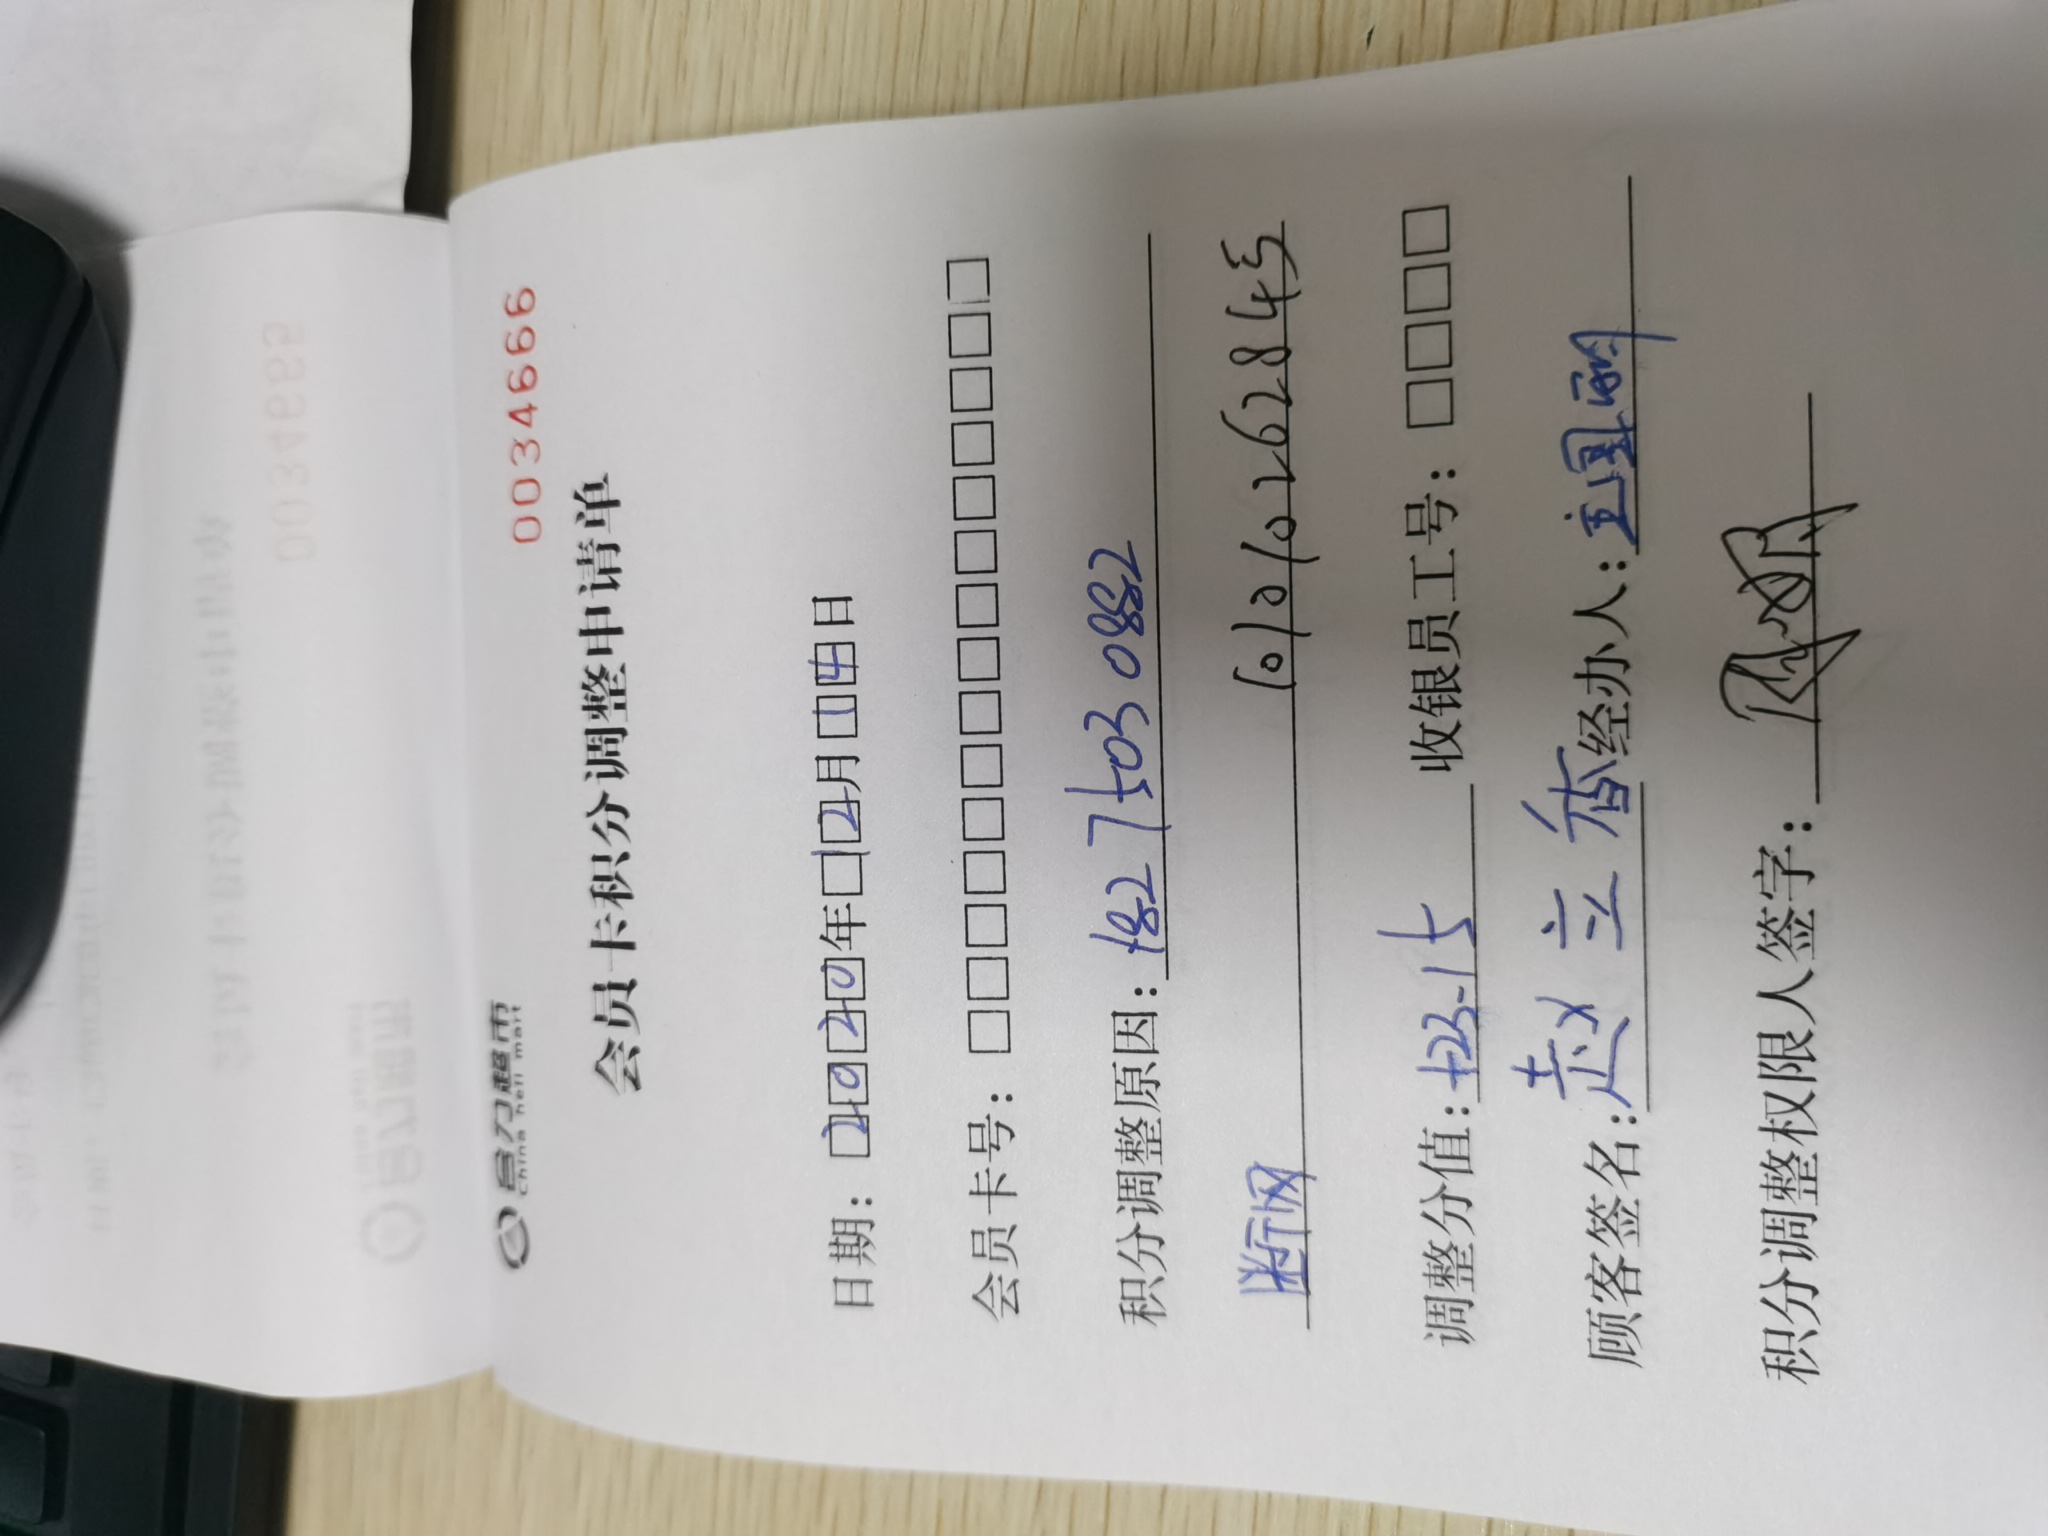 合力超市
china heli mart
0034666
会员卡积分调整申请单
日期：2020年12月14日
会员卡号：
积分调整原因：182 7503 0882
断网
调整分值：+23.15 收银员工号：
顾客签名：赵立香 经办人：
积分调整权限人签字：